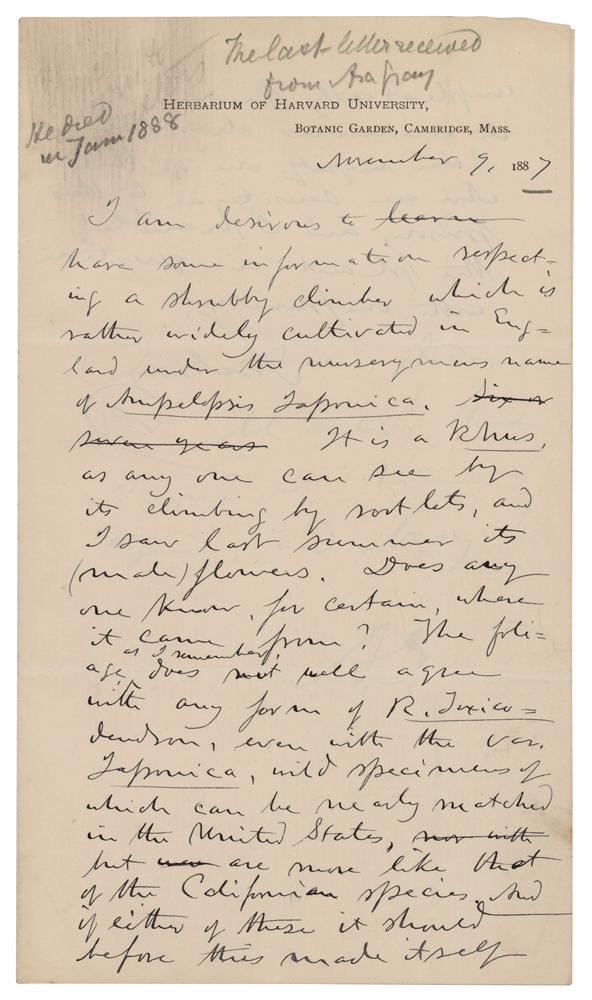 The last letter received
from Asa Gray
He died
in Jany 1888
HERBARIUM OF HARVARD UNIVERSITY,
BOTANIC GARDEN, CAMBRIDGE, MASS.
November 9, 1887
I am desirous to learn
have some information respect=
ing a shrubby climber which is
rather widely cultivated in Eng=
land under the nurserymens name
of Ampelopsis Japonica. Six or
seven years It is a Rhus,
as any one can see by
its climbing by rootlets, and
I saw last summer its
(male) flowers. Does any
one know, for certain, where
it came from? The foli=
as I remember,
age, does not well agree
with any form of R. Toxico=
dendron, even with the var.
Japonica, wild specimens of
which can be nearly matched
in the United States, nor with
but are more like that
of the Californian species. And
if either of these it should
before this made itself